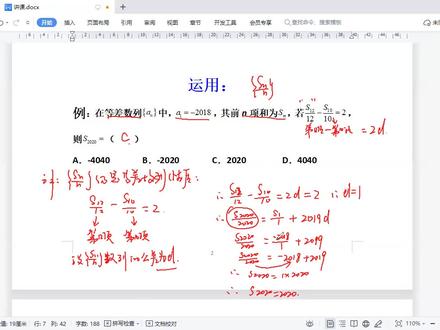 讲课.docx
文件
开始
插入
页面布局
引用
审阅
视图
章节
开发工具
会员专享
查找命令、搜索模板
运用：{Sn/n}
例：在等差数列{aₙ}中，a₁=-2018，其前 n 项和为Sₙ，若S₁₂/12 - S₁₀/10 = 2，
则S₂₀₂₀=（ C ）
第12项-第10项 = 2d
A、-4040 B、-2020 C、2020 D、4040
S₁₂/12 - S₁₀/10 = 2
第12项 第10项
设{Sn/n}数列的公差为d.
∴ S₁₂/12 - S₁₀/10 = 2d = 2 ∴ d=1
∴ S₂₀₂₀/2020 = S₁/1 + 2019d
S₂₀₂₀/2020 = -2018/1 + 2019
S₂₀₂₀/2020 = -2018+2019
∴ S₂₀₂₀ = 1×2020
∴ S₂₀₂₀=2020.
2
值: 19厘米 行: 7 列: 42 字数: 188 拼写检查 文档校对 110%